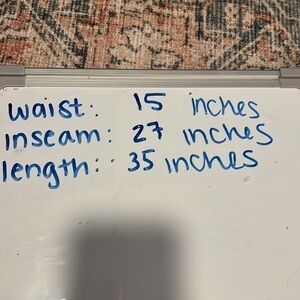 waist: 15 inches
inseam: 27 inches
length: 35 inches